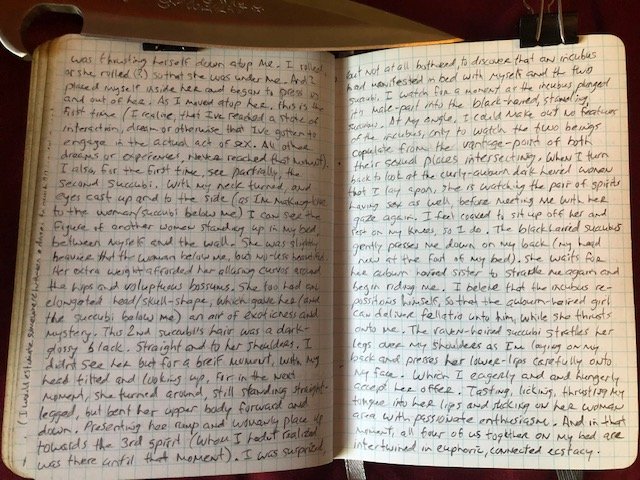 was thrusting herself down atop me. I rolled
or she rolled (?) so that she was under me. And I
placed myself inside her and began to press in
and out of her. As I moved atop her, this is the
first time (I realize, that I've reached a state of
interaction, dream or otherwise that I've gotten to
engage in the actual act of sex. All other
dreams or experiences, never reached that moment).
I also, for the first time, see partially, the
second succubi. With my neck turned, and
eyes cast up and to the side (as I'm making love
to the woman/succubi below me) I can see the
figure of another women standing up in my bed,
between myself and the wall. She was slightly
heavier than the woman below me, but no-less beautiful.
Her extra weight afforded her alluring curves around
the hips and voluptuous bossums. She too had an
elongated head/skull-shape, which gave her (and
the succubi below me) an air of exoticness and
mystery. This 2nd succubi's hair was a dark-
glossy black. Straight and to her shoulders. I
didnt see her but for a breif moment, with my
head tilted and looking up, for in the next
moment, she turned around, still standing straight-
legged, but bent her upper body forward and
down. Presenting her rump and womanly place up
towards the 3rd spirit (whom I hadnt realized
was there until that moment). I was surprized,
(I would estimate somewhere between a
but not at all bothered, to discover that an incubus
had manifested in bed with myself and the two
succubi. I watch for a moment as the incubus plunged
it's male-part into the black-haired, standing,
succubus. At my angle, I could make out no features
of the incubus, only to watch the two beings
copulate from the vantage-point of both
their sexual places intersecting. When I turn
back to look at the curly-auburn dark heired women
that I lay apon, she is watching the pair of spirits
having sex as well, before meeting me with her
gaze again. I feel cooved to sit up off her and
rest on my knees, so I do. The black haired succubus
gently presses me down on my back (my head
now at the foot of my bed). She waits for
her auburn haired sister to straddle me again and
begin riding me. I beleive that the incubus re-
positions himself, so that the auburn-haired girl
can deliver fellatio unto him, while she thrusts
onto me. The raven-haired succubi stratles her
legs over my shoulders as I'm laying on my
back and presses her lower-lips carefully onto
my face. Which I eagerly and hungerly
accept her offer. Tasting, licking, thrusting my
tongue into her lips and sucking on her woman
area with passionate enthusiasm. And in that
moment, all four of us together on my bed are
intertwined in euphoric, connected ecstacy.